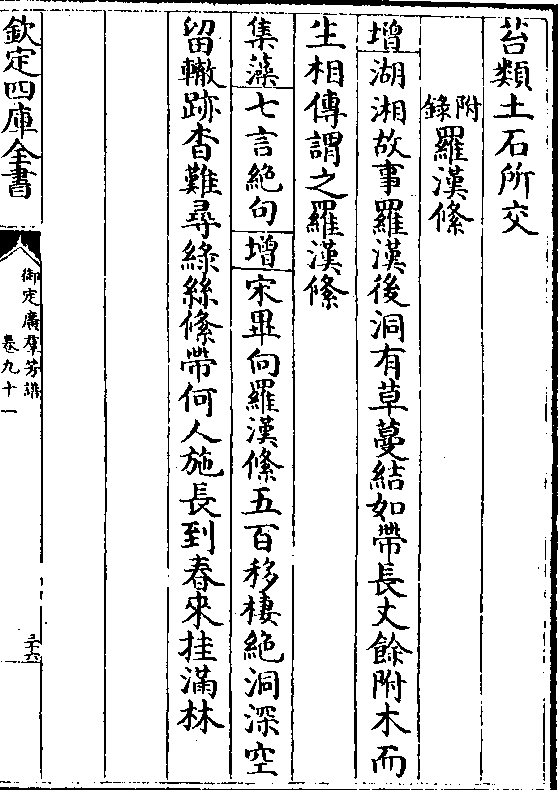 苔類土石所交
附錄羅漢絛
增湖湘故事羅漢後洞有草蔓結如帶長丈餘附木而
生相傳謂之羅漢絛
集藻七言絶句增宋畢向羅漢絛五百移棲絶洞深空
留轍跡杳難尋綠絲絛帶何人施長到春來挂滿林
欽定四庫全書
御定廣羣芳譜
卷九十一
三十六